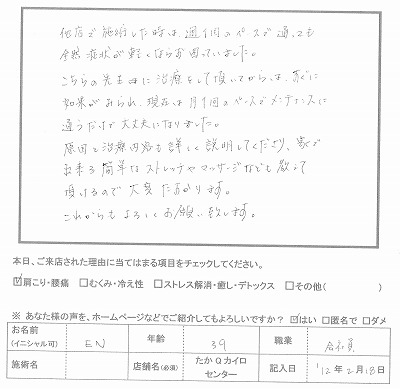 他店で施術した時は、週1回のペースで通っても
全然症状が軽くならず困っていました。
こちらの先生に治療をして頂いてからは、すぐに
効果がみられ、現在は月1回のペースでメンテナンスに
通うだけで大丈夫になりました。
原因と治療内容も詳しく説明してくださり、家で
出来る簡単なストレッチやマッサージなども教えて
頂けるので大変たすかります。
これからもよろしくお願い致します。
本日、ご来店された理由に当てはまる項目をチェックしてください。
☑肩こり・腰痛 □むくみ・冷え性 □ストレス解消・癒し・デトックス □その他( )
※ あなた様の声を、ホームページなどでご紹介してもよろしいですか? ☑はい □匿名で □ダメ
お名前 (イニシャル可) EN 年齢 39 職業 会社員
施術名 店舗名(必須) たかQカイロセンター 記入日 '12年2月18日